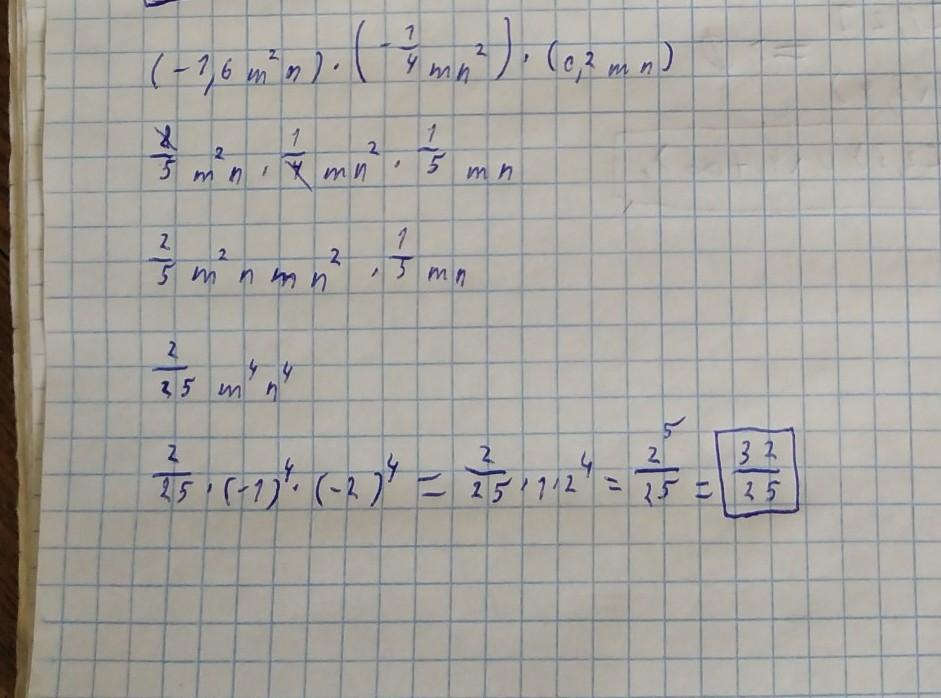 (-1,6 m²n) · (-1/4 mn²) · (0,2 mn)
8/5 m²n · 1/4 mn² · 1/5 mn
2/5 m²n mn² · 1/5 mn
2/25 m⁴n⁴
2/25 · (-1)⁴ · (-2)⁴ = 2/25 · 1 · 2⁴ = 2⁵/25 = 32/25